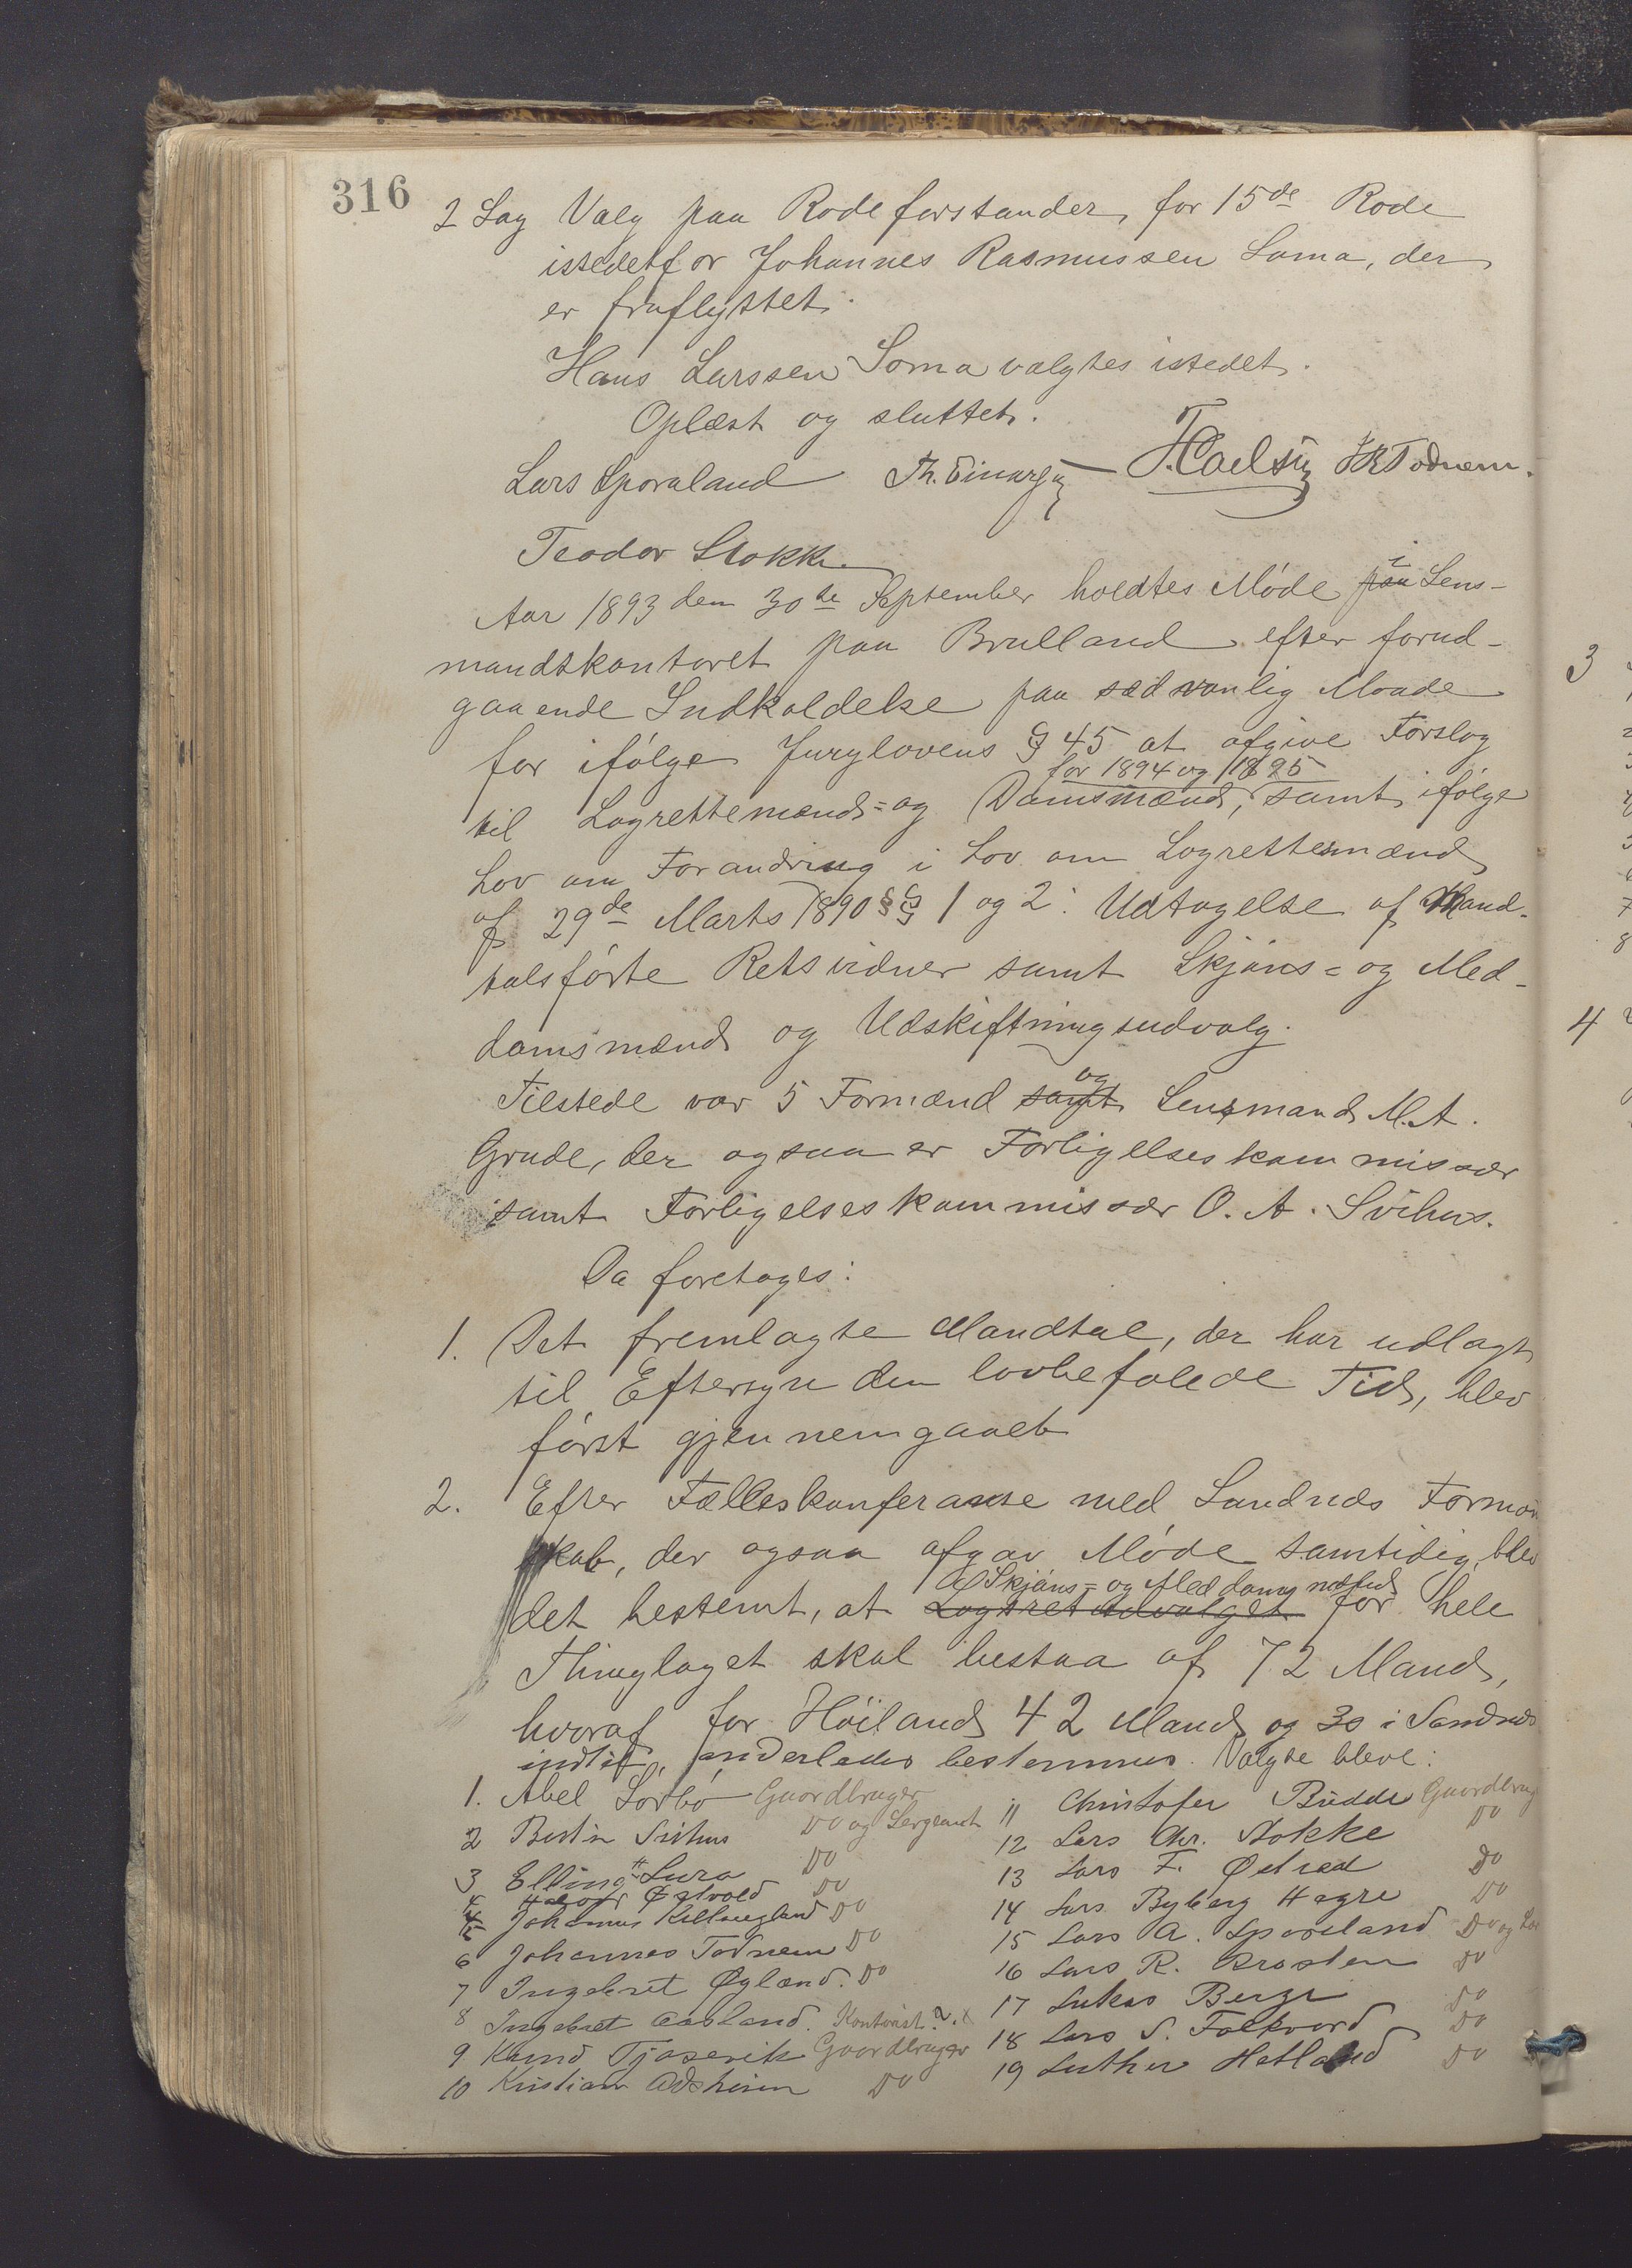 316
2 Sag Valg paa Rodeforstander, for 15de Rode
istedetfor Johannes Rasmussen Soma, der
er fraflyttet.
Hans Larssen Soma valgtes istedet.
Oplæst og sluttet.
Lars Sporaland Th. Einarsen T. Carlsen J R Todnem.
Teodor Stokke
Aar 1893 den 30te September holdtes Møde i Lens-
mandskontoret paa Brulland efter forud-
gaaende Indkaldelse paa sædvanlig Maade
for ifølge Jurylovens § 45 at afgive Forslag
for 1894 og 1895
til Lagrettemænd= og Domsmænd, samt ifølge
Lov om Forandring i Lov om Lagrettesmænd
af 29de Marts 1890 §§ 1 og 2: Udtagelse af Mand-
talsførte Retsvidner samt Skjøns= og Med-
domsmænd og Udskiftningsudvalg.
Tilstede var 5 Formænd og Lensmand M. A.
Grude, der ogsaa er Forligelseskommissær
samt Forligelseskommissær O. A. Svihus.
Da foretoges:
1. Det fremlagte Mandtal, der har udlagt
til Eftersyn den lovbefalede Tid, blev
først gjennemgaaet
2. Efter Fælleskonferanse med Sandnæs Forman
skab, der ogsaa afgav Møde samtidig, blev
Skjøns= og Meddomsmænd
det bestemt, at Lagretudvalget for hele
Thinglaget skal bestaa af 72 Mand,
hvoraf for Høiland 42 Mand og 30 i Sandnæs
indtil anderledes bestemmes. Valgte bleve:
1. Abel Sørbø Gaardbruger
2 Bertin Svihus Do og Sergeant
3 Elling Lura Do
4 Halvor Østvold Do
5 Johannes Kellesvgland Do
6 Johannes Todnem Do
7 Ingebret Øgland. Do
8 Ingebret Aasland. Kontorist
9 Knud Tjosevik Gaardbruger
10 Kristian Adsheim Do
11 Christofer Budde Gaardbrug
12 Lars Chr. Stokke Do
13 Lars F. Østraad Do
14 Lars Byberg Hagre Do
15 Lars A. Sporaland Do og
16 Lars R. Brasten Do
17 Lukas Berge Do
18 Lars S. Folkvord Do
19 Luther Hetland Do
3
4